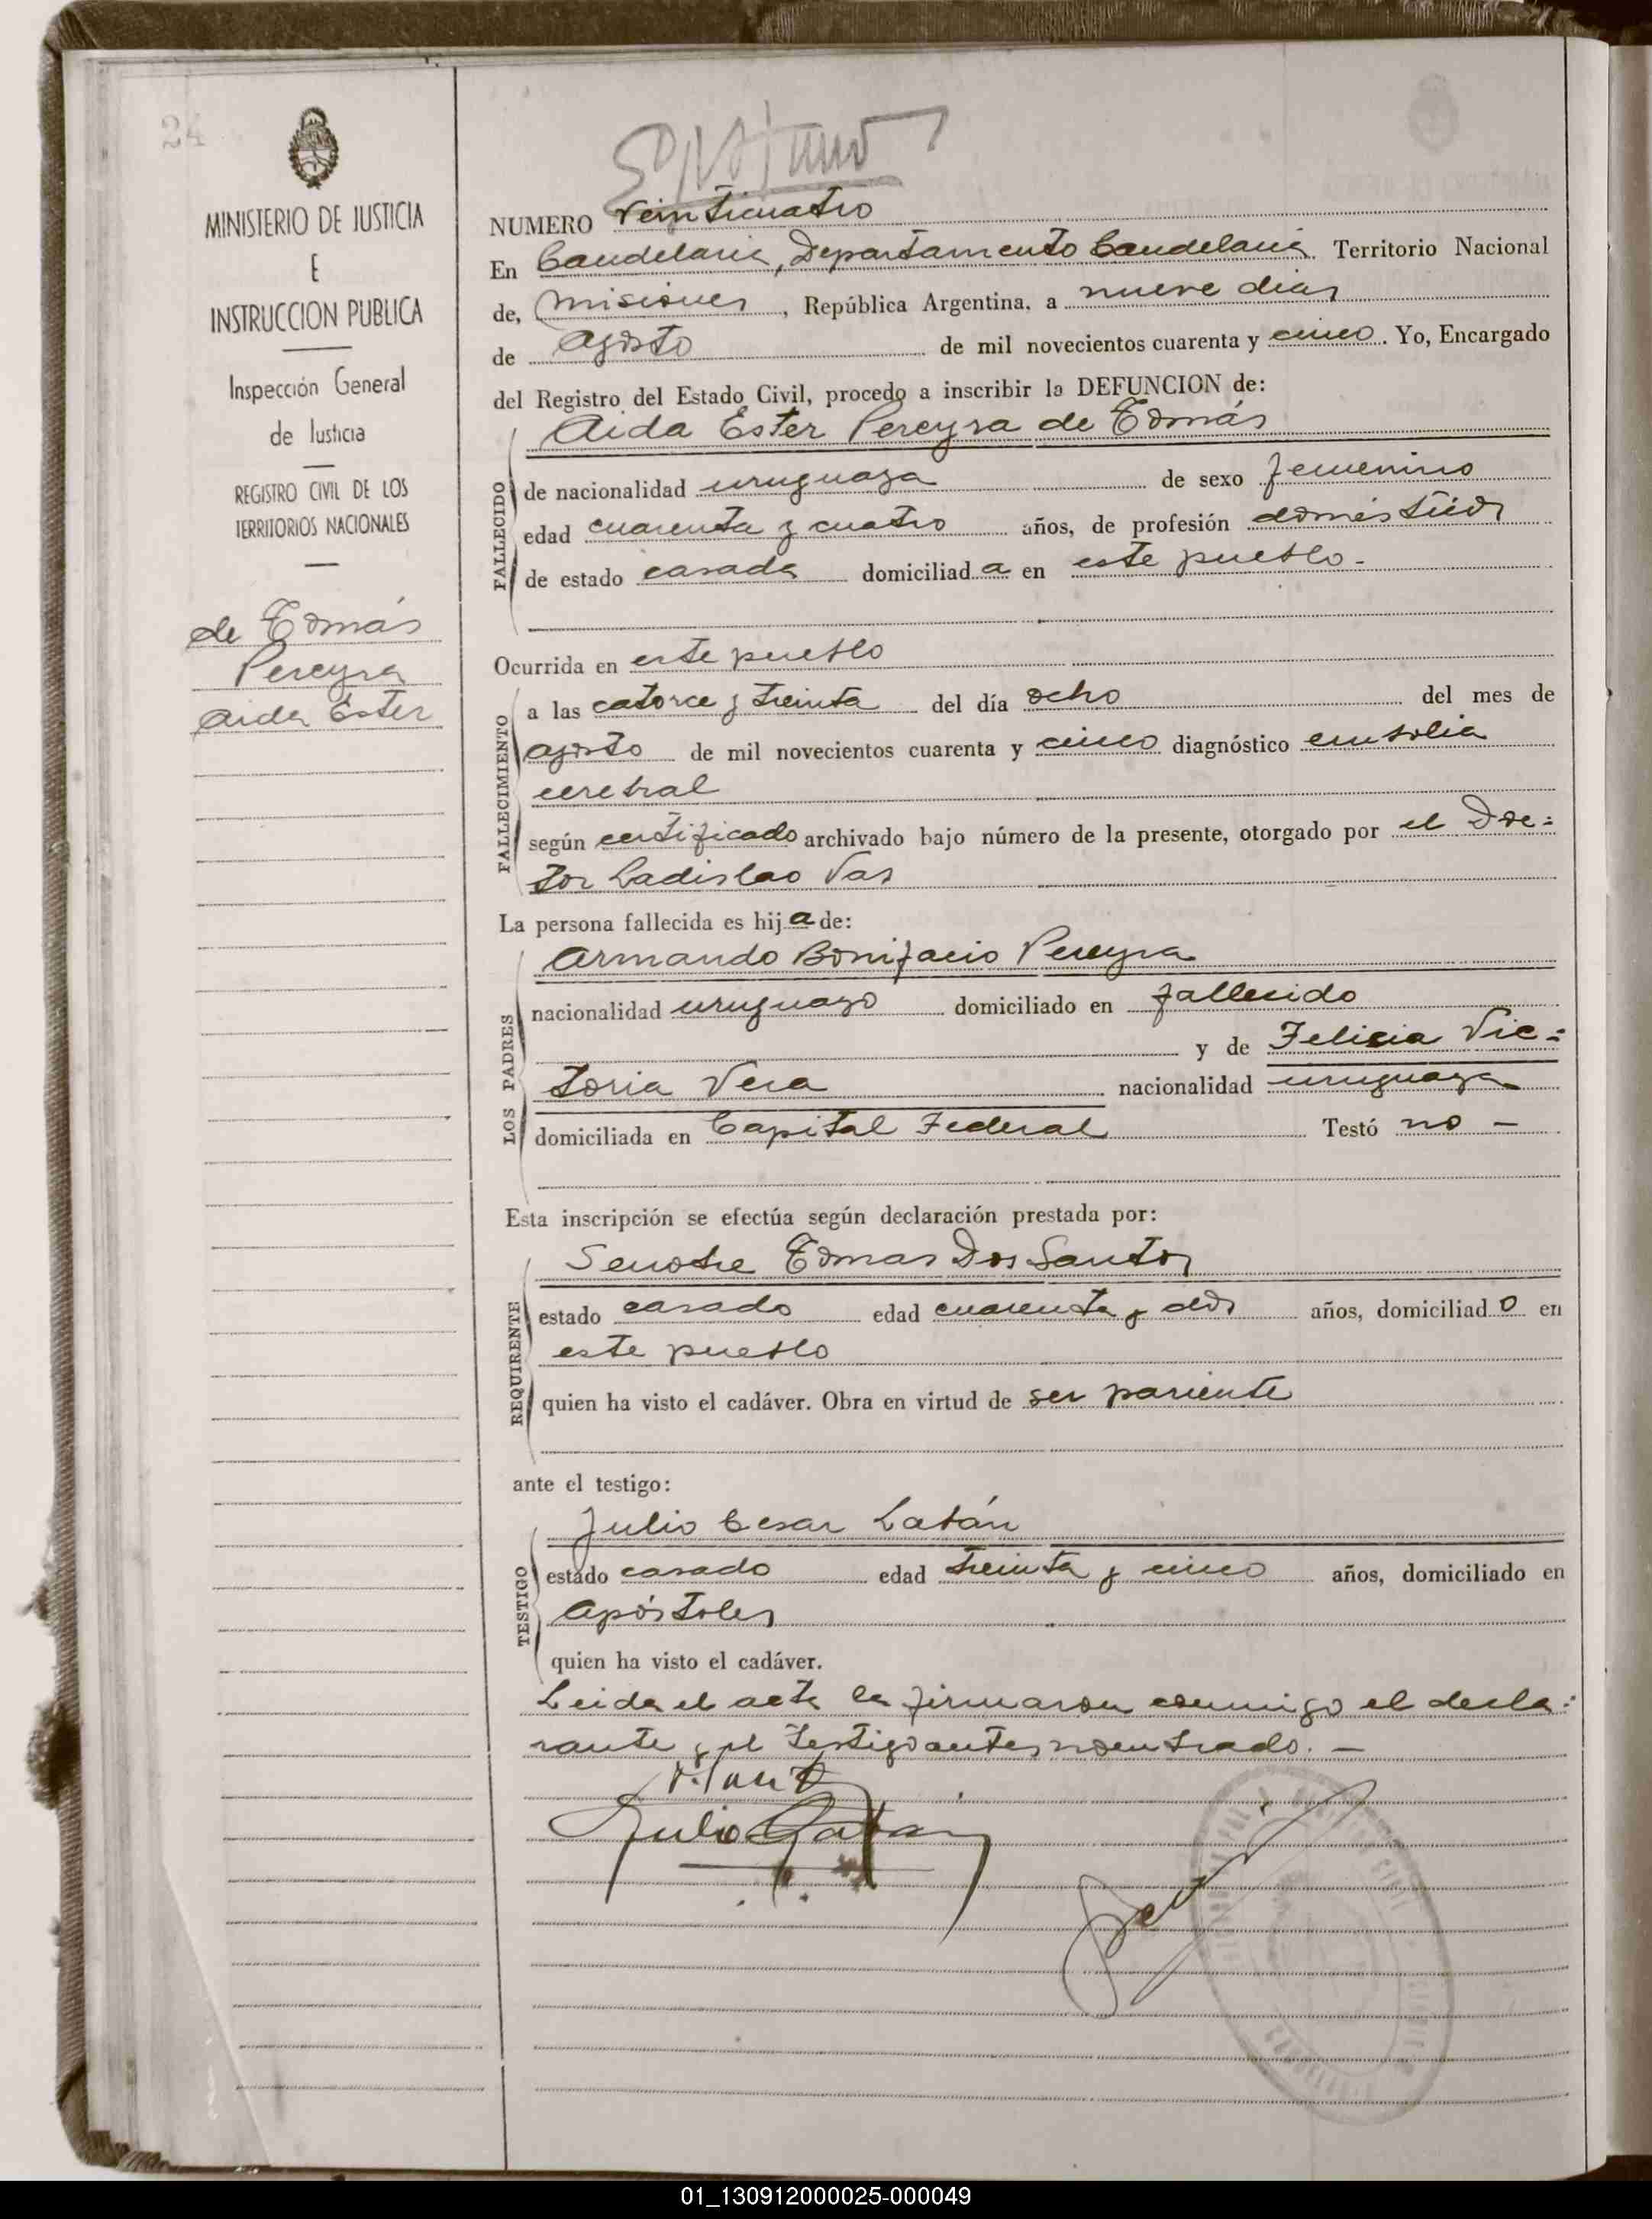 24
MINISTERIO DE JUSTICIA
E
INSTRUCCION PUBLICA
Inspección General
de Justicia
REGISTRO CIVIL DE LOS
TERRITORIOS NACIONALES
de Tomás
Pereyra
Aida Ester
NUMERO Veinticuatro
En Candelaria, Departamento Candelaria Territorio Nacional
de, Misiones, República Argentina, a nueve dias
de Agosto de mil novecientos cuarenta y cinco. Yo, Encargado
del Registro del Estado Civil, procedo a inscribir la DEFUNCION de:
Aida Ester Pereyra de Tomás
FALLECIDO
de nacionalidad uruguaya de sexo femenino
edad cuarenta y cuatro años, de profesión
de estado casada domiciliada en este pueblo.-
Ocurrida en este pueblo
FALLECIMIENTO
a las catorce y treinta del día ocho del mes de
agosto de mil novecientos cuarenta y cinco diagnóstico embolia
cerebral
según certificado archivado bajo número de la presente, otorgado por el Doc=
tor Ladislao Vas
La persona fallecida es hija de:
LOS PADRES
Armando Bonifacio Pereyra
nacionalidad uruguayo domiciliado en fallecido
y de Felicia Vic=
toria Vera nacionalidad uruguaya
domiciliada en Capital Federal Testó no -
Esta inscripción se efectúa según declaración prestada por:
REQUIRENTE
Tomas Dos Santos
estado casado edad cuarenta y dos años, domiciliado en
este pueblo
quien ha visto el cadáver. Obra en virtud de ser pariente
ante el testigo:
TESTIGO
Julio Cesar Labán
estado casado edad treinta y cinco años, domiciliado en
Apóstoles
quien ha visto el cadáver.
Leida el acta la firmaron conmigo el decla=
rante y el testigo antes nombrado.-
Julio Laban
01_130912000025-000049